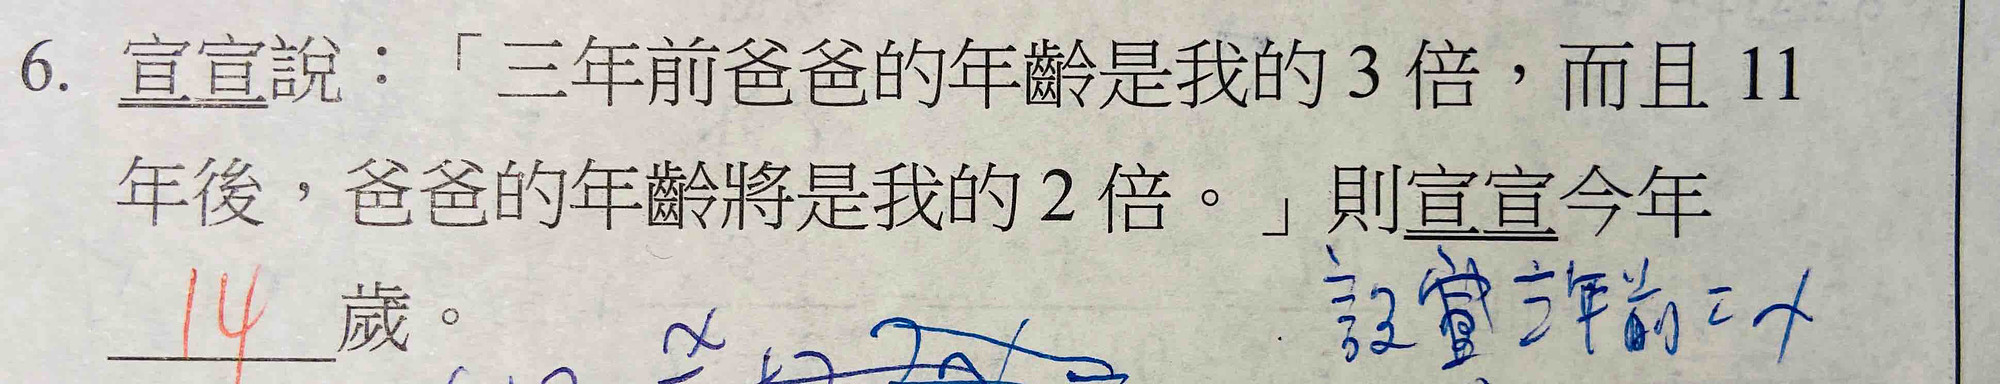 6. 宣宣說：「三年前爸爸的年齡是我的 3 倍，而且 11
年後，爸爸的年齡將是我的 2 倍。」則宣宣今年
14 歲。
設宣三年前=x